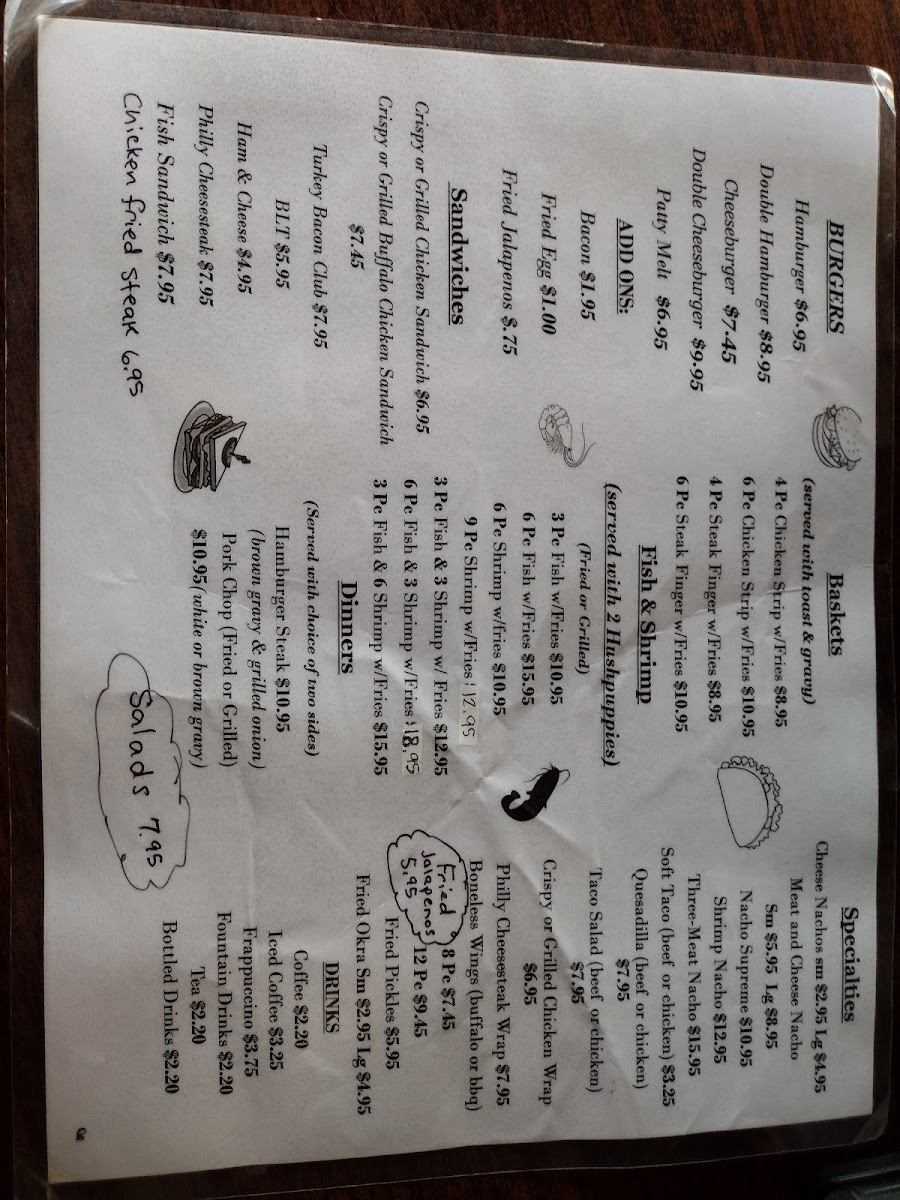 BURGERS
Hamburger $6.95
Double Hamburger $8.95
Cheeseburger $7.45
Double Cheeseburger $9.95
Patty Melt $6.95
ADD ONS:
Bacon $1.95
Fried Egg $1.00
Fried Jalapenos $.75
Sandwiches
Crispy or Grilled Chicken Sandwich $6.95
Crispy or Grilled Buffalo Chicken Sandwich
$7.45
Turkey Bacon Club $7.95
BLT $5.95
Ham & Cheese $4.95
Philly Cheesesteak $7.95
Fish Sandwich $7.95
Chicken fried steak 6.95
Baskets
(served with toast & gravy)
4 Pc Chicken Strip w/Fries $8.95
6 Pc Chicken Strip w/Fries $10.95
4 Pc Steak Finger w/Fries $8.95
6 Pc Steak Finger w/Fries $10.95
Fish & Shrimp
(served with 2 Hushpuppies)
(Fried or Grilled)
3 Pc Fish w/Fries $10.95
6 Pc Fish w/Fries $15.95
6 Pc Shrimp w/fries $10.95
9 Pc Shrimp w/Fries $12.95
3 Pc Fish & 3 Shrimp w/ Fries $12.95
6 Pc Fish & 3 Shrimp w/Fries $18.95
3 Pc Fish & 6 Shrimp w/Fries $15.95
Dinners
(Served with choice of two sides)
Hamburger Steak $10.95
(brown gravy & grilled onion)
Pork Chop (Fried or Grilled)
$10.95(white or brown gravy)
Salads 7.95
Specialties
Cheese Nachos sm $2.95 Lg $4.95
Meat and Cheese Nacho
Sm $5.95 Lg $8.95
Nacho Supreme $10.95
Shrimp Nacho $12.95
Three-Meat Nacho $15.95
Soft Taco (beef or chicken) $3.25
Quesadilla (beef or chicken)
$7.95
Taco Salad (beef or chicken)
$7.95
Crispy or Grilled Chicken Wrap
$6.95
Philly Cheesesteak Wrap $7.95
Boneless Wings (buffalo or bbq)
8 Pc $7.45
12 Pc $9.45
Fried
Jalapenos
5.95
Fried Pickles $5.95
Fried Okra Sm $2.95 Lg $4.95
DRINKS
Coffee $2.20
Iced Coffee $3.25
Frappuccino $3.75
Fountain Drinks $2.20
Tea $2.20
Bottled Drinks $2.20